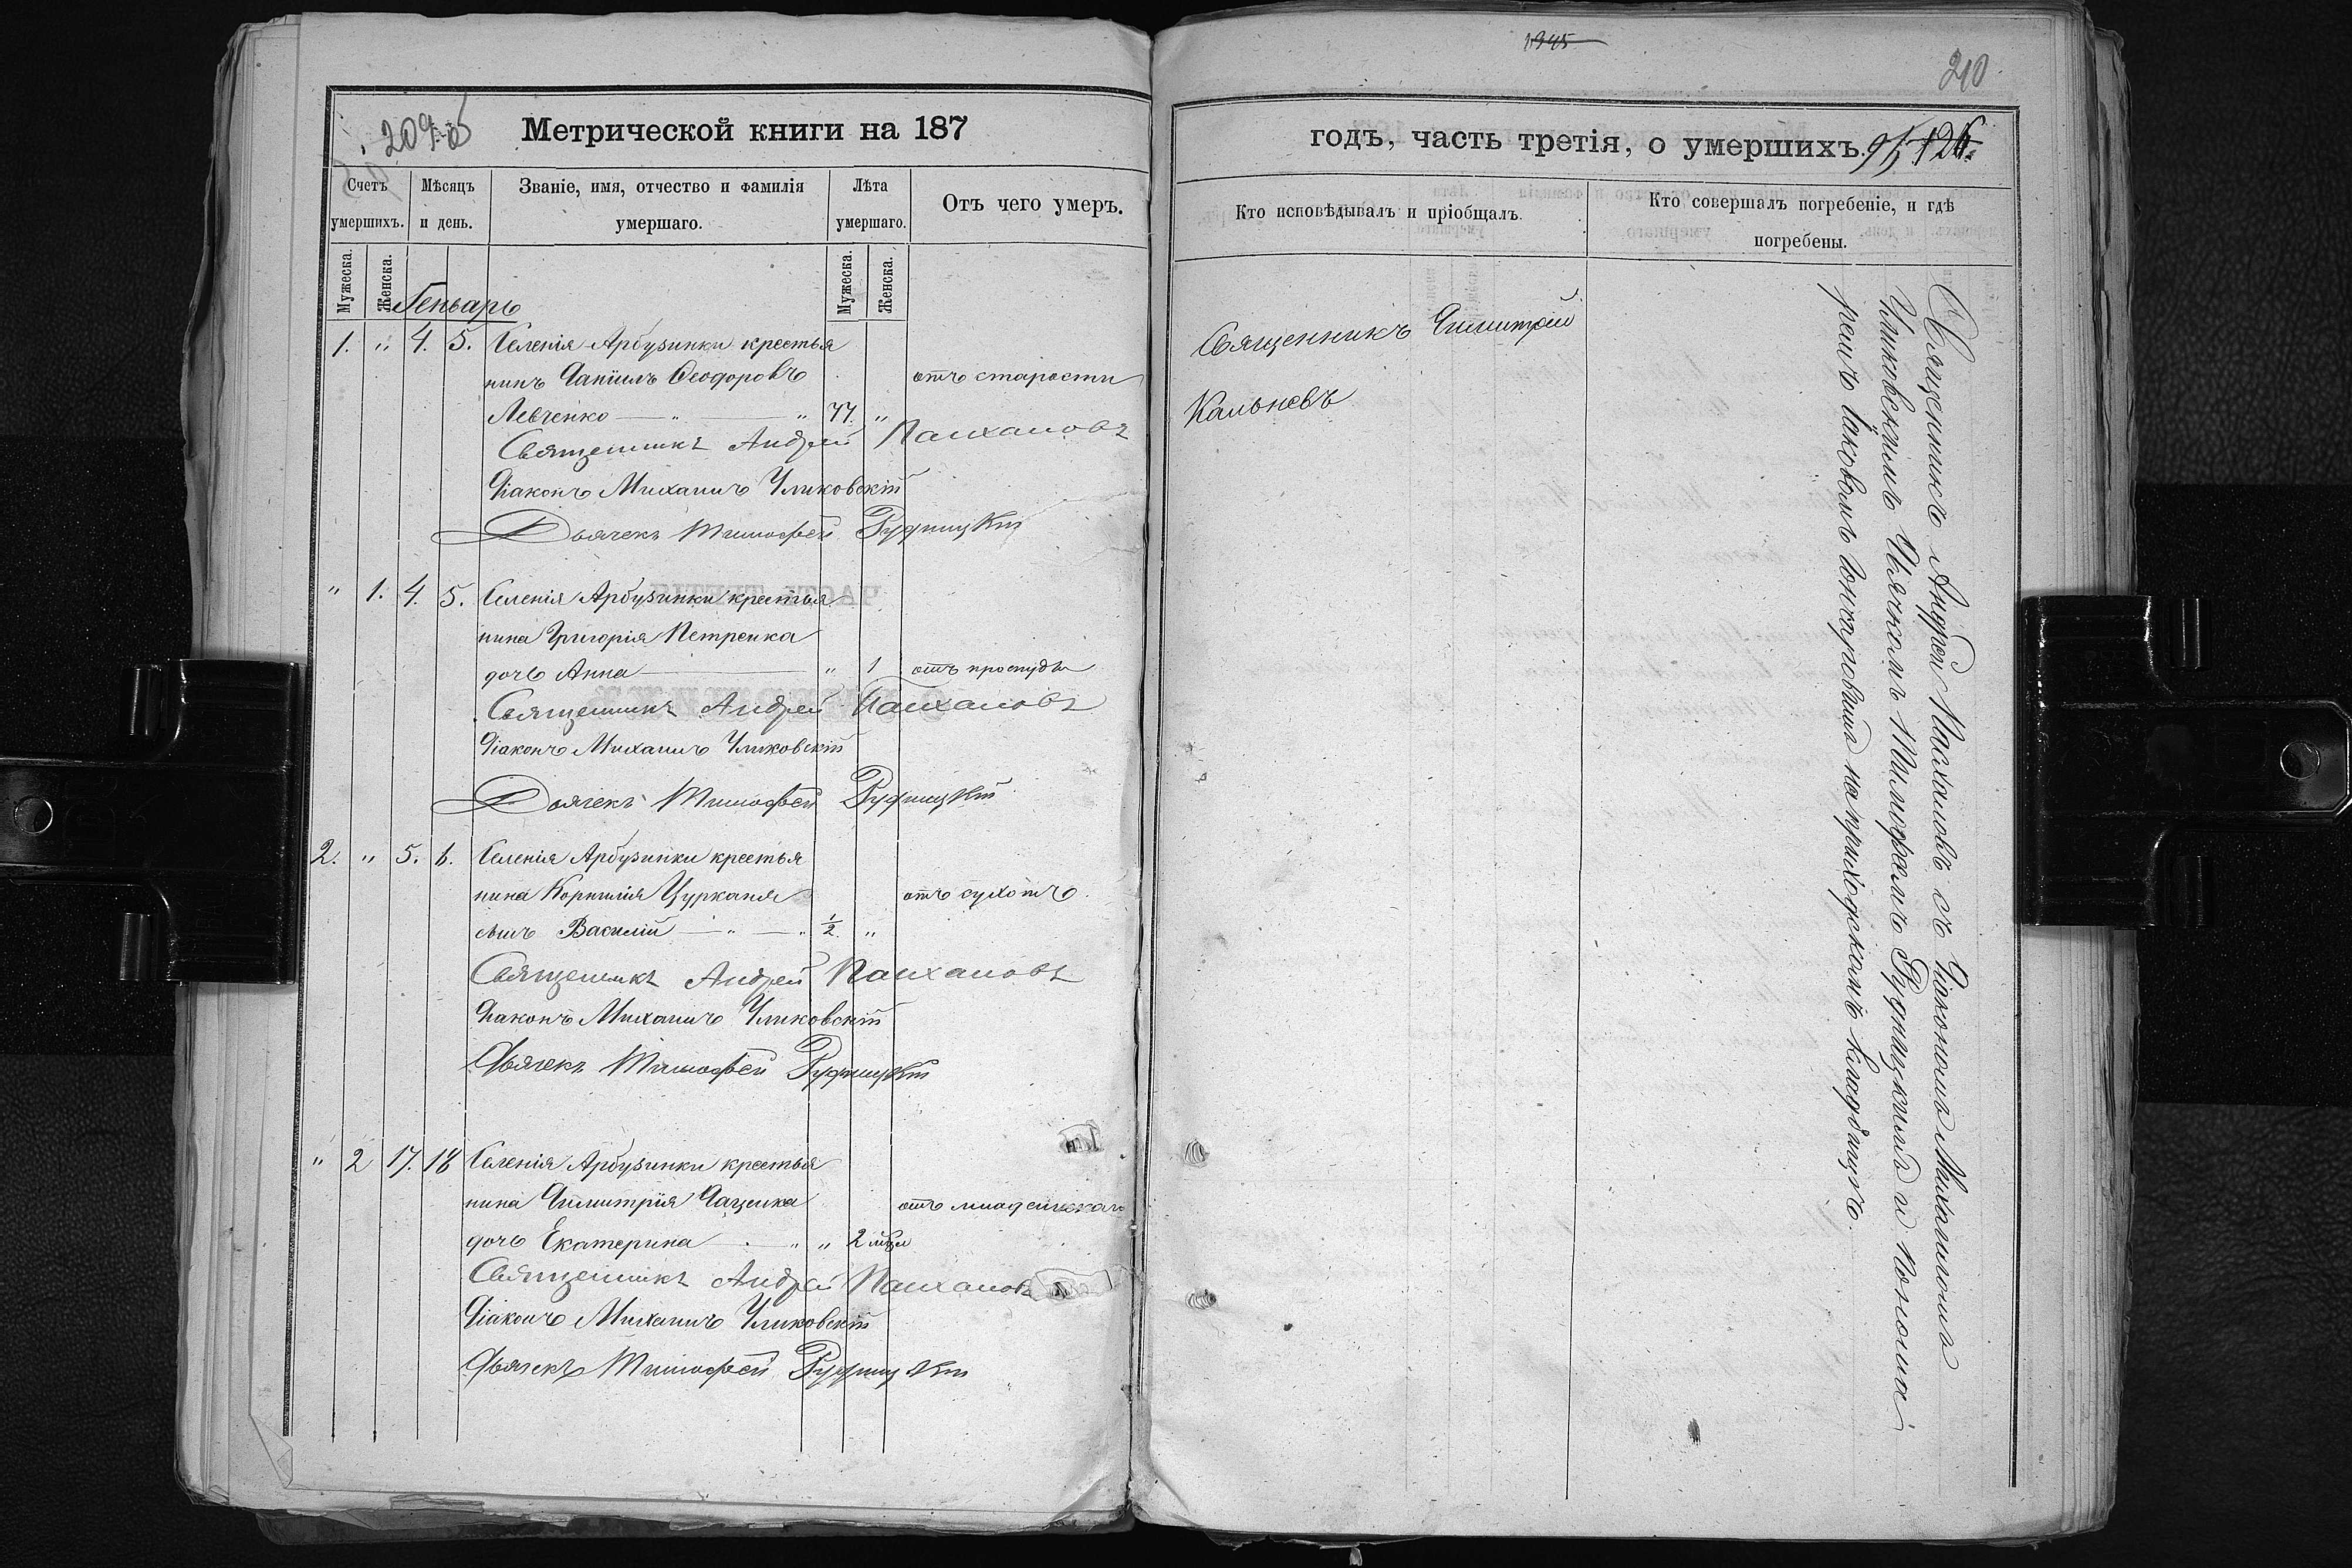 209 об
Метрической книги на 187
Счетъ умершихъ.
Мѣсяцъ и день.
Званіе, имя, отчество и фамилія умершаго.
Лѣта умершаго.
Отъ чего умеръ.
Мужеска. Женска. Мужеска. Женска.
Генварь
1. " 4. 5. Селенія Арбузинки крестья
нинъ Даніилъ Ѳеодоровъ отъ старости
Левченко — " — " 77. "
Священникъ Андрей
Діаконъ Михаилъ
Дьячекъ Тимофей Рудницкій
" 1. 4. 5. Селенія Арбузинки крестья
нина Григорія Петренка
дочь Анна — " 1 отъ простуды
Священникъ Андрей
Діаконъ Михаилъ
Дьячекъ Тимофей Рудницкій
2. " 5. 6. Селенія Арбузинки крестья
нина Корнилія Цурканя отъ сухотъ
сынъ Василій — " — " 1/2 "
Священникъ Андрей
Діаконъ Михаилъ
Дьячекъ Тимофей Рудницкій
" 2 17. 18 Селенія Арбузинки крестья
нина Димитрія Даценка отъ младенческаго
дочь Екатерина — " " 2 мѣц
Священникъ Андрей
Діаконъ Михаилъ
Дьячекъ Тимофей Рудницкій
1945
210
годъ, часть третія, о умершихъ.
95 126.
Кто исповѣдывалъ и пріобщалъ.
Кто совершалъ погребеніе, и гдѣ погребены.
Священникъ Димитрій
Кальневъ
Священникъ Андрей съ Діакономъ Михаиломъ
Дячкомъ Тимофеемъ Рудницкимъ и Понома
ремъ Іаковомъ на приходскомъ кладбищѣ.